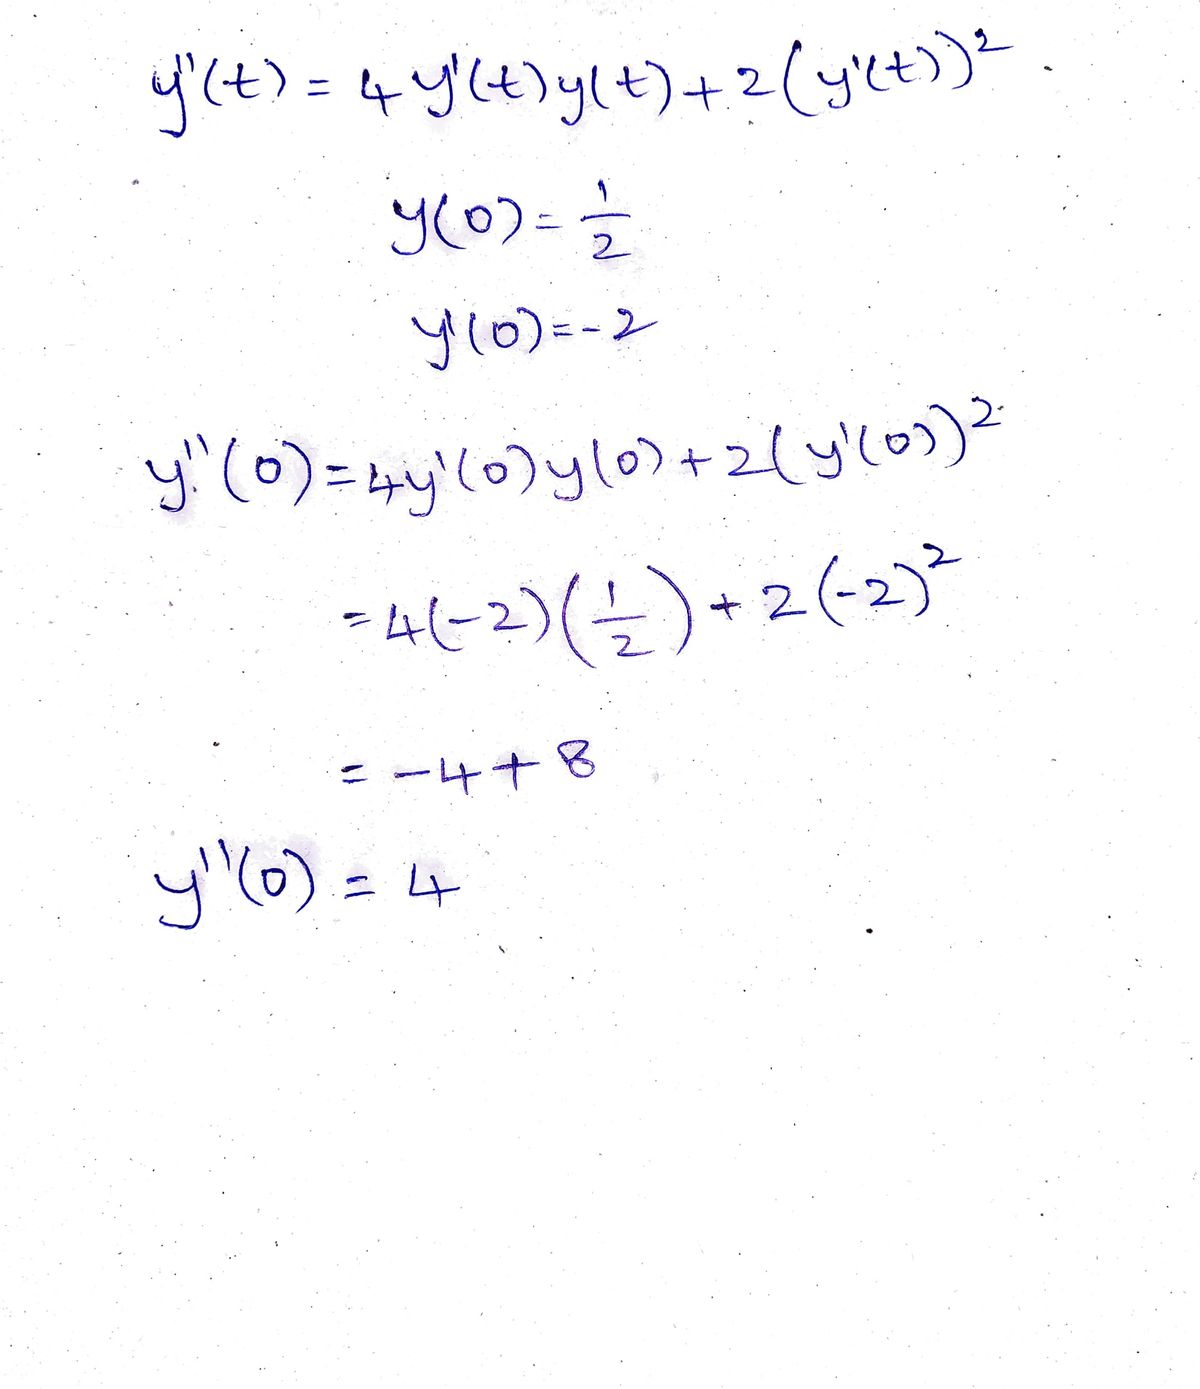 y''(t) = 4 y'(t) y(t) + 2 (y'(t))²
y(0) = 1/2
y'(0) = -2
y''(0) = 4y'(0) y(0) + 2(y'(0))²
= 4(-2)(1/2) + 2(-2)²
= -4 + 8
y''(0) = 4